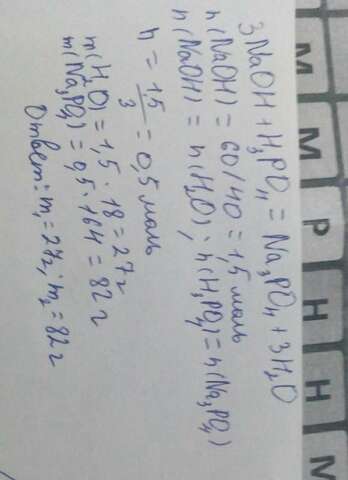 3NaOH + H₃PO₄ = Na₃PO₄ + 3H₂O
n(NaOH) = 60/40 = 1,5 моль
n(NaOH) = n(H₂O); n(H₃PO₄) = n(Na₃PO₄)
n = 1,5/3 = 0,5 моль
m(H₂O) = 1,5 · 18 = 27 г
m(Na₃PO₄) = 0,5 · 164 = 82 г
Ответ: m₁ = 27 г; m₂ = 82 г
М М Р Н Н М